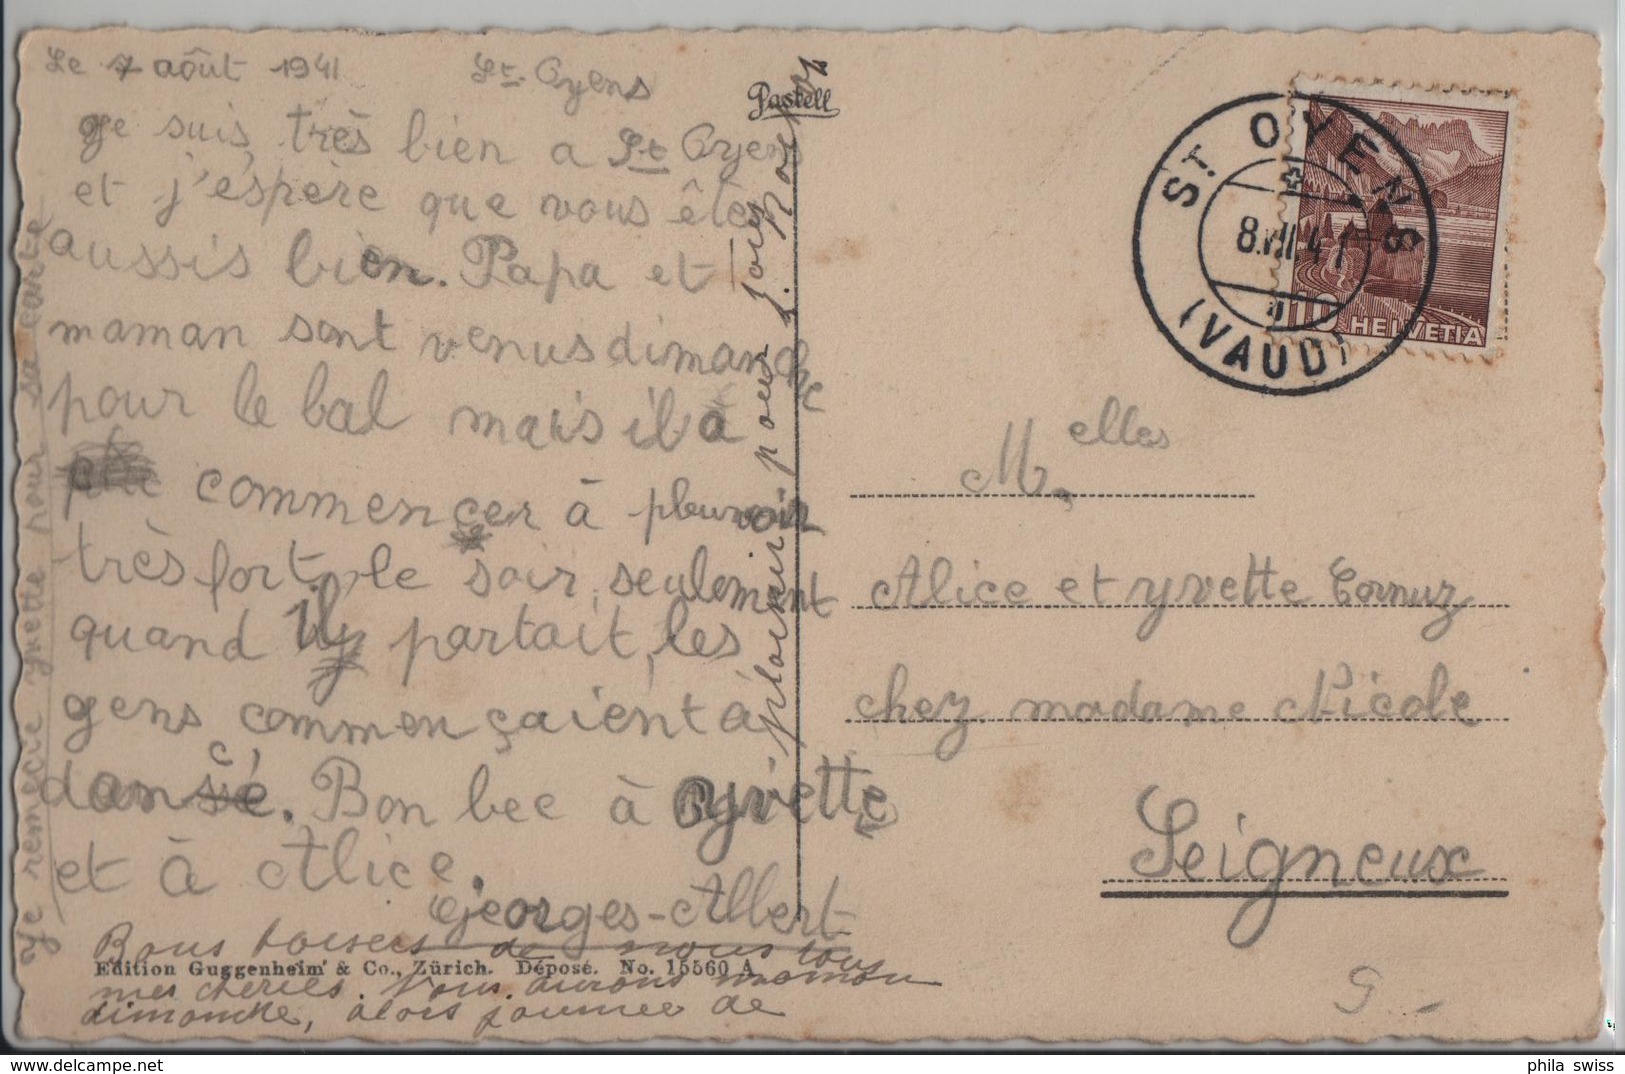 Le 7 août 1941 St. Oyens
Pastell
Je suis très bien a St Oyens
et j'espère que vous êtes
aussis bien. Papa et
maman sont venus dimanche
pour le bal mais il a
commencer à pleuvoir
très fort, le soir, seulement
quand il partait, les
gens commençaient à
dansé. Bon bec à yvette
et à Alice.
Georges-Albert
Bons baisers de nous tous
Edition Guggenheim & Co., Zürich. Déposé. No. 15560 A
mes chéries. Nous aurons maman
dimanche, alors journée de
plaisir pour
Je remecie yvette pour sa carte
ST OYENS
8.VIII.41
(VAUD)
10 HELVETIA
Melles
Alice et yvette Cornuz
chez madame Nicole
Seigneux
phila_swiss